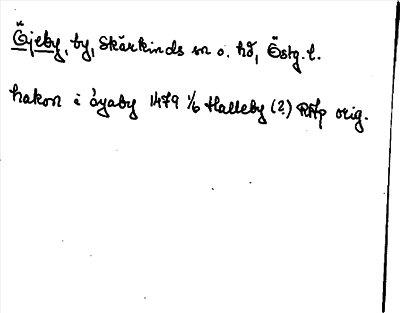 Öjeby, by, Skärkinds sn o. hd, Östg. l.
hakon i öyaby 1479 1/6 Halleby (?) RAp orig.